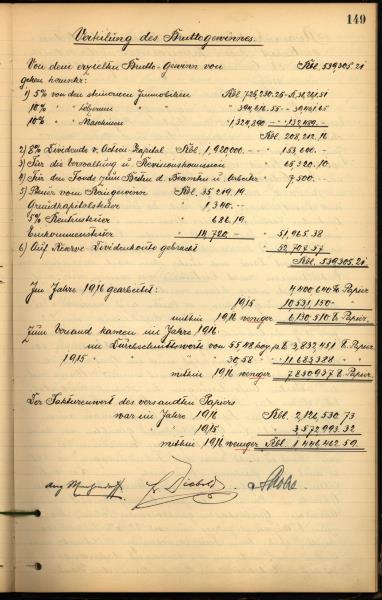 149
Verteilung des Bruttogewinnes.
Von dem erzielten Brutto-Gewinn von Rbl. 539305.21
gehen herunter:
1) 5% von den steinernen Immobilien Rbl. 726,230.25 - R. 36,311.51
10% " hölzernen " 394,616.55 - 39,461.65
10% " Maschinen " 1,324,390 - 132,439.-
Rbl. 208,212.16
2) 8% Dividende v. Actien-Kapital Rbl. 1,920000.- 153,600.-
3) Für die Verwaltung u. Revisionskommission 65320.10
4) Für den Fonds zum Besten d. Beamten u. Arbeiter 7,500.-
5) Steuer vom Reingewinn Rbl. 35,219.19
Grundkapitalsteuer 1,340.-
5% Rentensteuer 686.19
Einkommensteuer 14,720.- 51,965.38
6) Auf Reserve-Dividendkonto gebracht 52,707.57
Rbl. 539305.21
Im Jahre 1916 gearbeitet: 4,400,640 ℔ Papier
1915 10,531,150 "
mithin 1916 weniger 6,130,510 ℔ Papier.
Zum Versand kamen im Jahre 1916:
im Durchschnittswerte von 55.48 kop. pr. ℔ 3,832,451 ℔ Papier
1915 " 30.58 " 11,683,388 "
mithin 1916 weniger 7,850,937 ℔ Papier.
Der Fakturenwert des versandten Papiers
war im Jahre 1916 Rbl. 2,126,530.73
" 1915 " 3,572,993.32
mithin 1916 weniger Rbl. 1,446,462.59